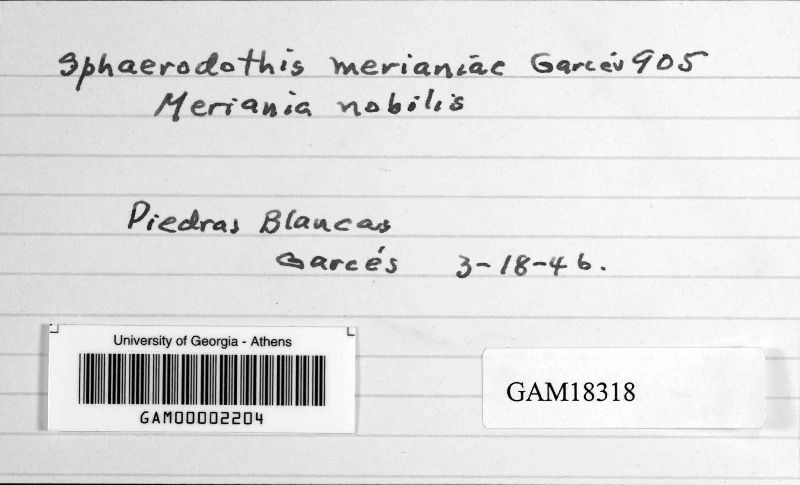 Sphaerodothis merianiae Garcés 905
Meriania nobilis
Piedras Blancas
Garcés 3-18-46.
University of Georgia - Athens
GAM00002204
GAM18318